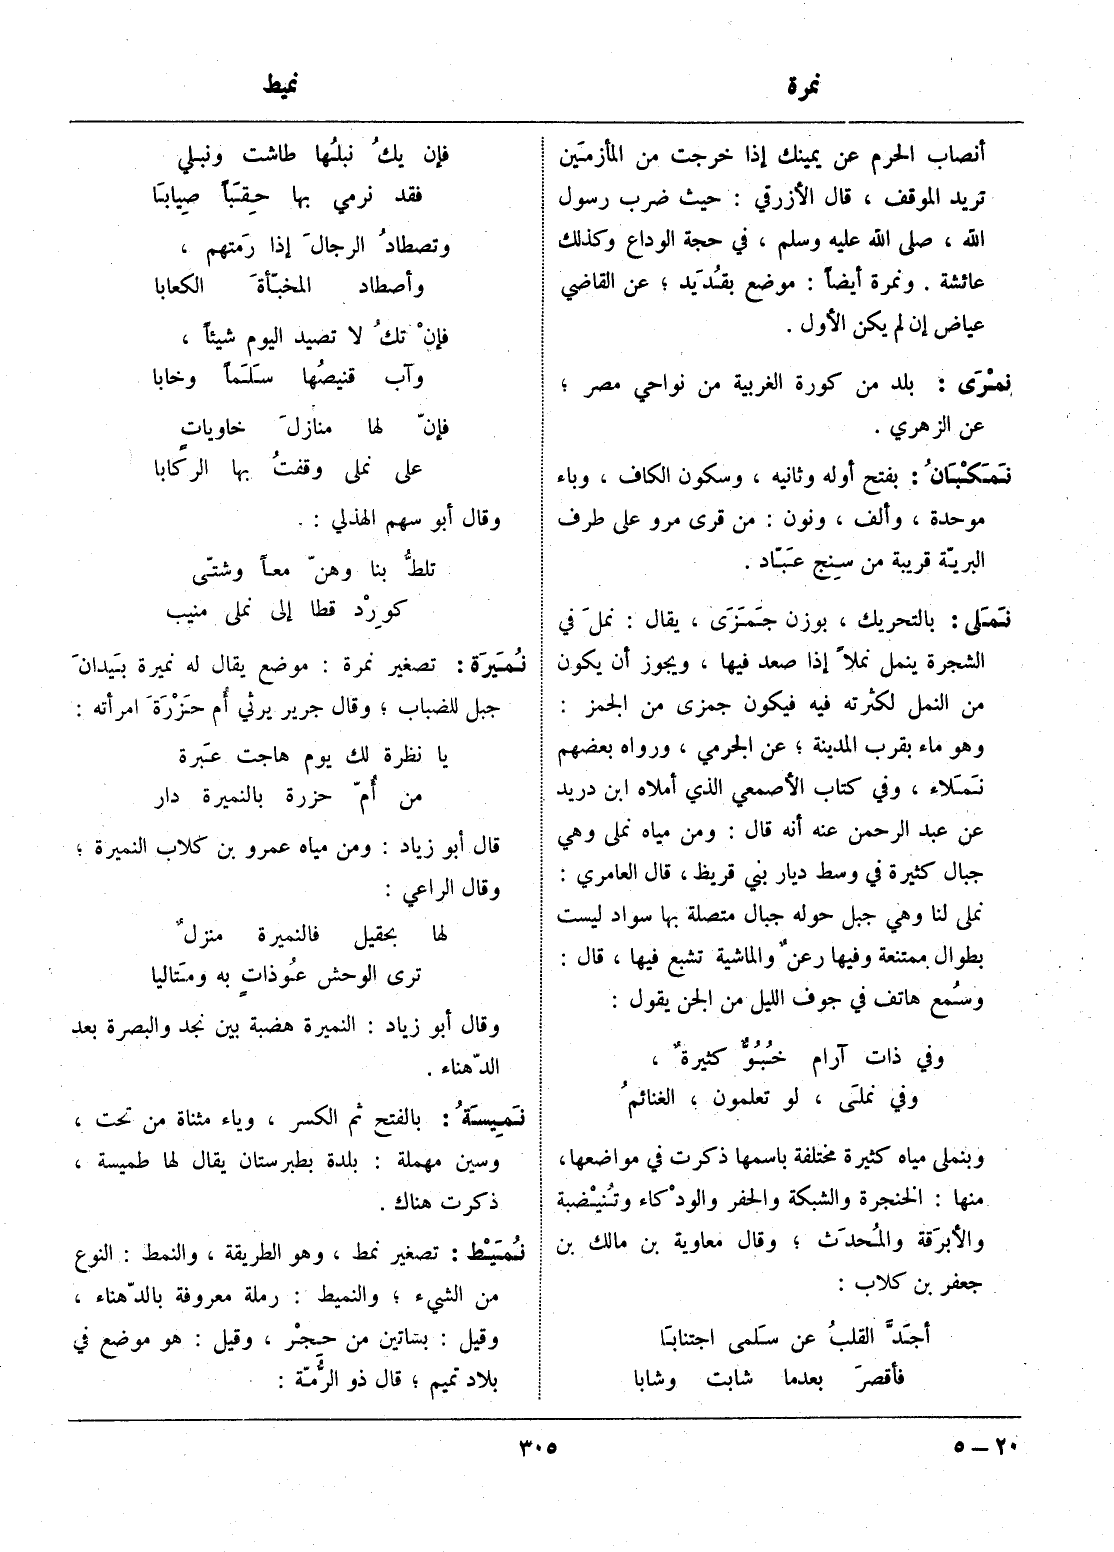 نمرة
نميط
أنصاب الحرم عن يمينك إذا خرجت من المأزمَين
تريد الموقف ، قال الأزرقي : حيث ضرب رسول
الله ، صلى الله عليه وسلم ، في حجة الوداع وكذلك
عائشة . ونمرة أيضاً : موضع بقُدَيد ؛ عن القاضي
عياض إن لم يكن الأول .
نِمْرَى : بلد من كورة الغربية من نواحي مصر ؛
عن الزهري .
نَمَكْبَانُ : بفتح أوله وثانيه ، وسكون الكاف ، وباء
موحدة ، وألف ، ونون : من قرى مرو على طرف
البريّة قريبة من سِنج عَبّاد .
نَمَلى : بالتحريك ، بوزن جَمَزَى ، يقال : نملَ في
الشجرة ينمل نملاً إذا صعد فيها ، ويجوز أن يكون
من النمل لكثرته فيه فيكون جمزى من الجمز :
وهو ماء بقرب المدينة ؛ عن الجرمي ، ورواه بعضهم
نَمَلاء ، وفي كتاب الأصمعي الذي أملاه ابن دريد
عن عبد الرحمن عنه أنه قال : ومن مياه نملى وهي
جبال كثيرة في وسط ديار بني قريظ ، قال العامري :
نملى لنا وهي جبل حوله جبال متصلة بها سواد ليست
بطوال ممتنعة وفيها رعنٌ والماشية تشبع فيها ، قال :
وسُمع هاتف في جوف الليل من الجن يقول :
وفي ذات آرام خُبُوٌّ كثيرةٌ ،
وفي نملَى ، لو تعلمون ، الغنائمُ
وبنملى مياه كثيرة مختلفة باسمها ذكرت في مواضعها،
منها : الخنجرة والشبكة والحفر والودْكاء وتُنَيْضبة
والأبرَقة والمُحدَث ؛ وقال معاوية بن مالك بن
جعفر بن كلاب :
أجَدَّ القلبُ عن سَلمى اجتنابَا
فأقصرَ بعدما شابت وشابا
فإن يكُ نبلُها طاشت ونبلي
فقد نرمي بها حِقبَاً صِيابَا
وتصطادُ الرجالَ إذا رَمتهم ،
وأصطاد المخبّأةَ الكعابا
فإنْ تكُ لا تصيد اليوم شيئاً ،
وآب قنيصُها سَلَماً وخابا
فإنّ لها منازلَ خاوياتٍ
على نملى وقفتُ بها الركابا
وقال أبو سهم الهذلي :
تلطُّ بنا وهنّ معاً وشتّى
كوِرْد قطا إلى نملى منيب
نُمَيرَة : تصغير نمرة : موضع يقال له نميرة بَيدانَ
جبل للضباب ؛ وقال جرير يرثي أُم حَزْرَةَ امرأته :
يا نظرة لك يوم هاجت عَبرة
من أُمّ حزرة بالنميرة دار
قال أبو زياد : ومن مياه عمرو بن كلاب النميرة ؛
وقال الراعي :
لها بحقيل فالنميرة منزلٌ
ترى الوحش عُوذاتٍ به ومتَاليا
وقال أبو زياد : النميرة هضبة بين نجد والبصرة بعد
الدّهناء .
نَمِيسَةُ : بالفتح ثم الكسر ، وياء مثناة من تحت ،
وسين مهملة : بلدة بطبرستان يقال لها طميسة ،
ذكرت هناك .
نُمَيْط : تصغير نمط ، وهو الطريقة ، والنمط : النوع
من الشيء ؛ والنميط : رملة معروفة بالدّهناء ،
وقيل : بساتين من حِجْر ، وقيل : هو موضع في
بلاد تميم ؛ قال ذو الرُّمّة :
٢٠ – ٥
٣٠٥